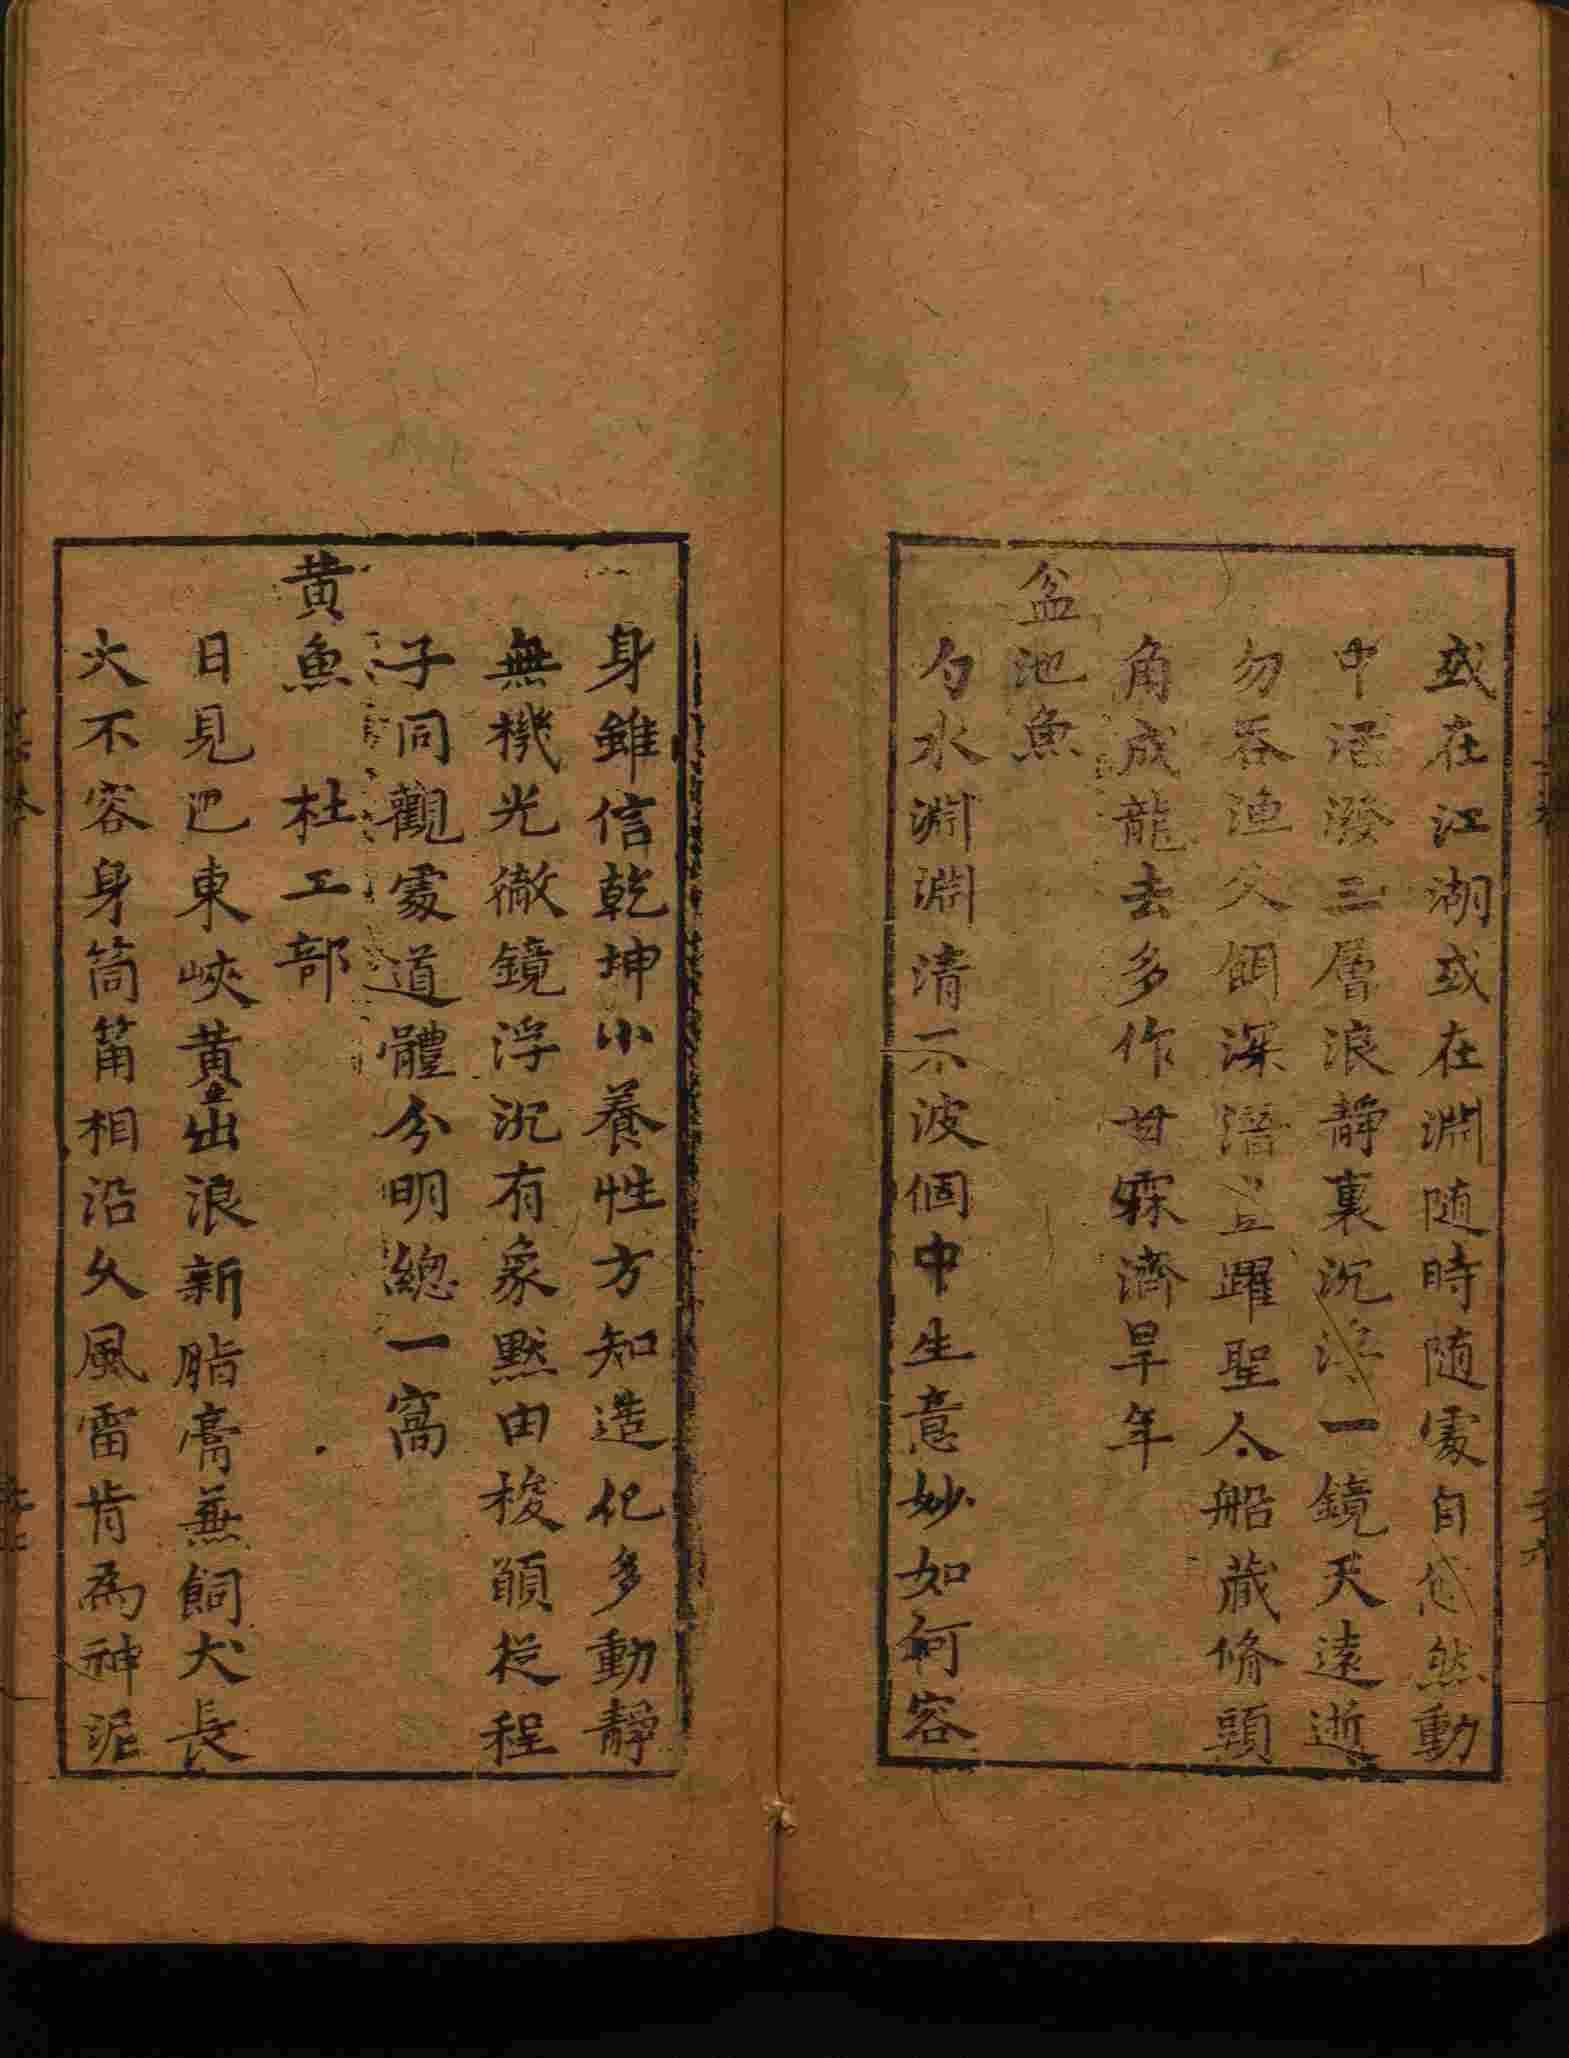 或在江湖或在淵随時随處自悠然動
中活潑三層浪靜裏沉浮一鏡天遠逝
勿吞漁父餌深潛豈躍聖人船藏脩頭
角成龍去多作甘霖濟旱年
盆池魚
勺水淵淵清不波個中生意妙如何容
身雖信乾坤小養性方知造化多動靜
無機光徹鏡浮沉有象黙由梭願従程
子同觀處道體分明總一窩
黄魚　杜工部
日見巴東峽黄魚出浪新脂膏兼飼犬長
大不容身筒筩相沿久風雷肯為神泥